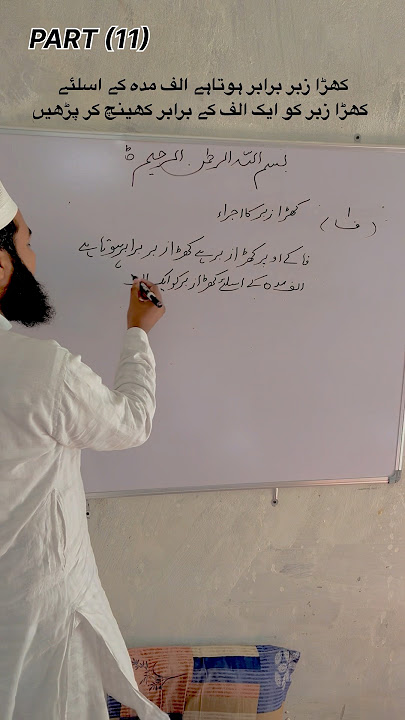 PART (11)
کھڑا زبر برابر ہوتاہے الف مدہ کے اسلئے
کھڑا زبر کو ایک الف کے برابر کھینچ کر پڑھیں
بسم اللہ الرحمٰن الرحیم
کھڑا زبر کا اجراء
فا کے اوپر کھڑا زبر ہے کھڑا زبر برابر ہوتا ہے
الف مدہ کے اسلئے کھڑا زبر کو ایک الف